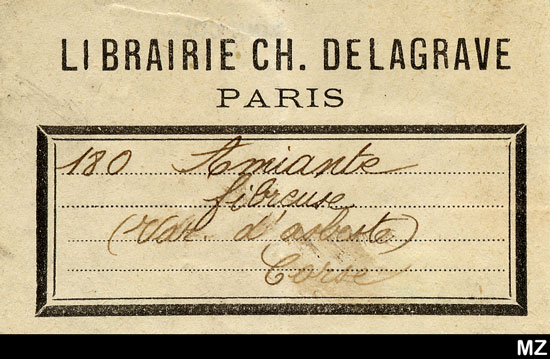 LIBRAIRIE CH. DELAGRAVE
PARIS
180 Amiante
fibreuse
(Var. d'asbeste)
Corse
MZ